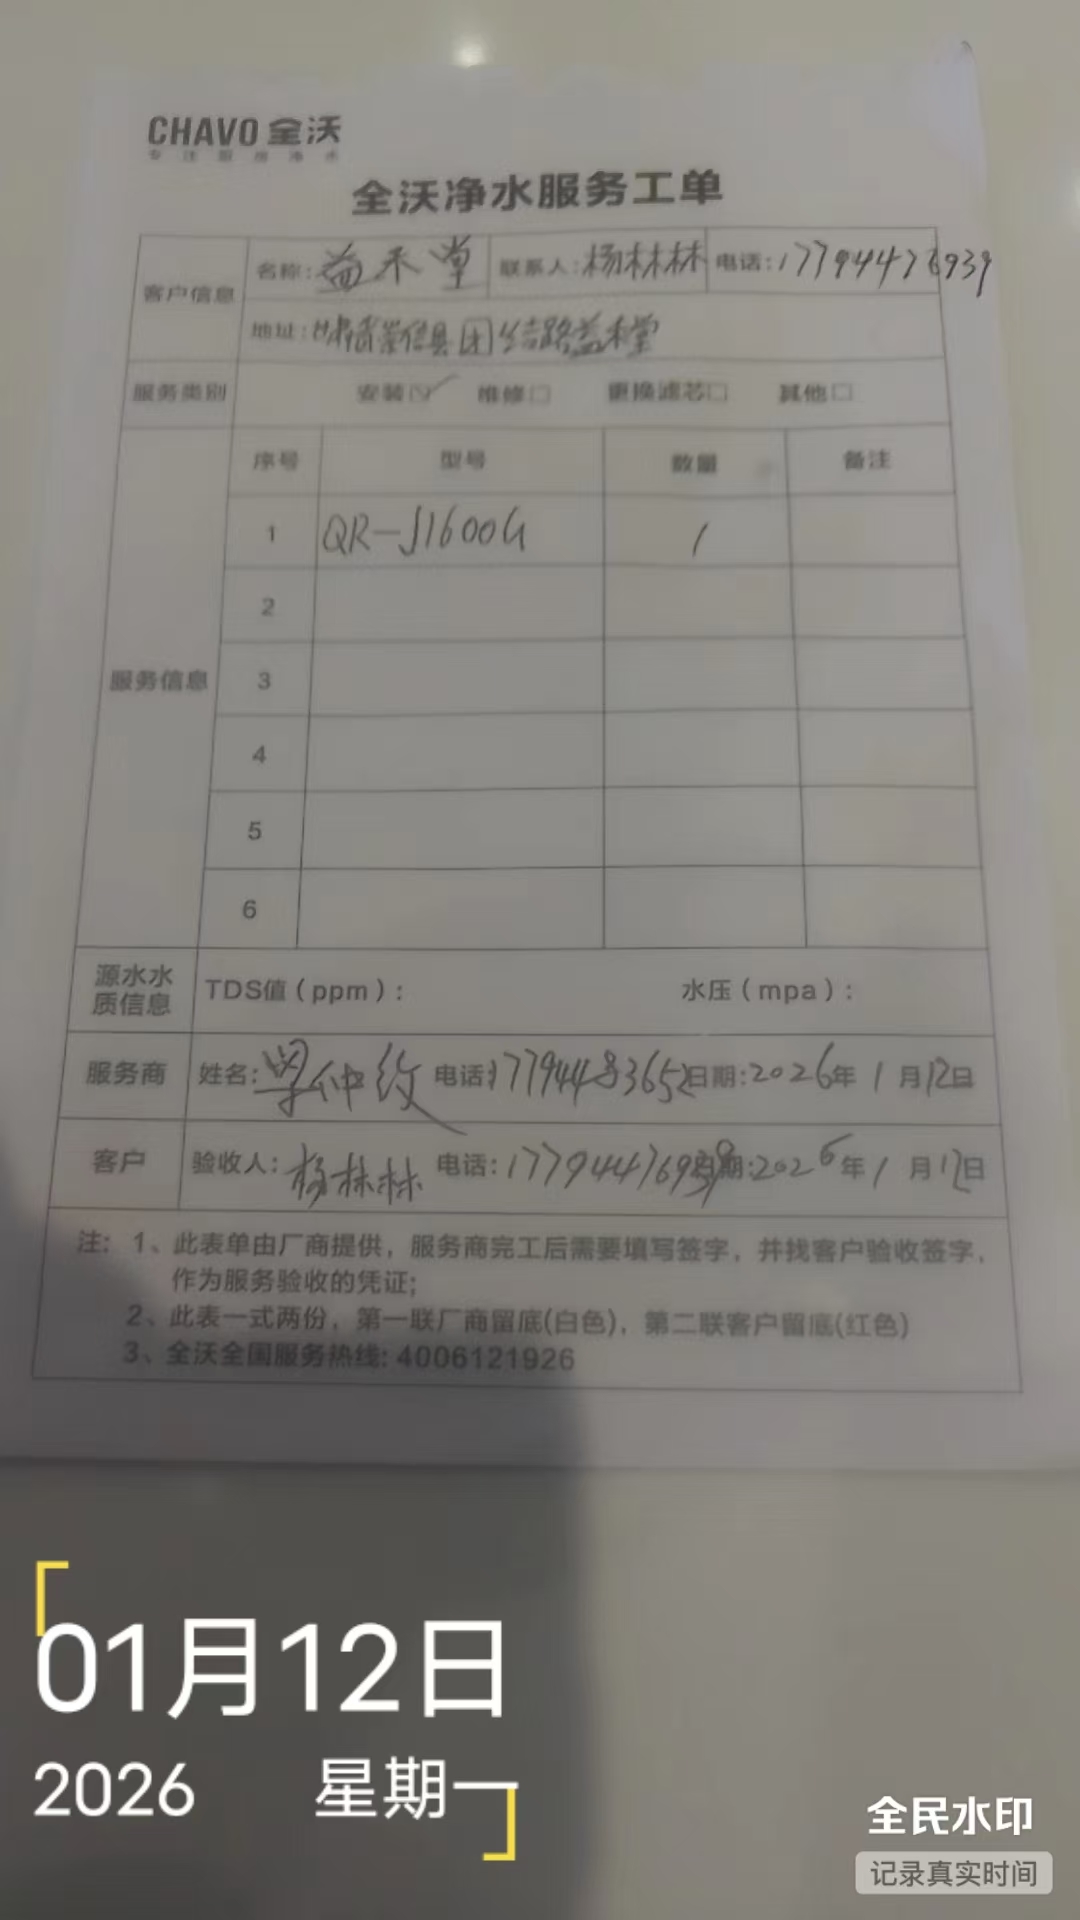 CHAVO 全沃
专注商用净水
全沃净水服务工单
客户信息 名称:益禾堂 联系人:杨林林 电话:17794476939
地址:甘肃省崇信县团结路益禾堂
服务类别 安装☑ 维修□ 更换滤芯□ 其他□
服务信息 序号 型号 数量 备注
1 QR-J1600G 1
2
3
4
5
6
源水水质信息 TDS值(ppm): 水压(mpa):
服务商 姓名: 仲 电话:17794483652 日期:2026年1月12日
客户 验收人:杨林林 电话:17794476939 日期:2026年1月12日
注: 1、此表单由厂商提供，服务商完工后需要填写签字，并找客户验收签字，
作为服务验收的凭证;
2、此表一式两份，第一联厂商留底(白色)，第二联客户留底(红色)
3、全沃全国服务热线: 4006121926
01月12日
2026 星期一
全民水印
记录真实时间